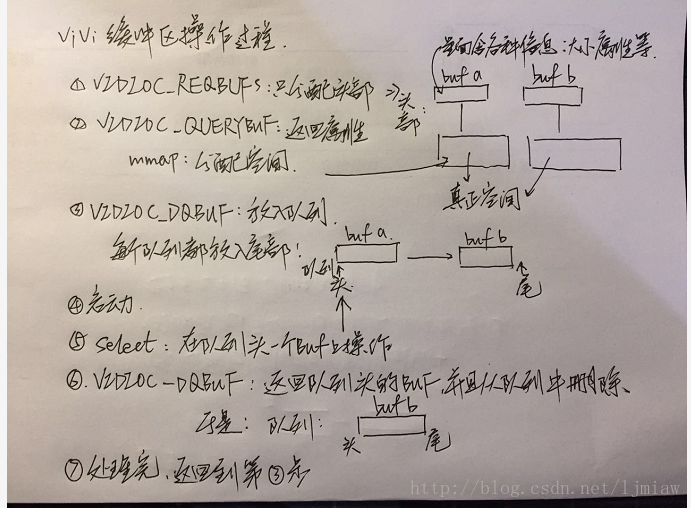 ViVi 缓冲区操作过程.
里面含各种信息:大小属性等.
buf a buf b
① V2D2OC_REQBUFS:只分配头部 => 头部:
② V2D2OC_QUERYBUF:返回属性
mmap:分配空间.
真正空间
③ V2D2OC_DQBUF:放入队列.
每个队列都放入尾部!
buf a. buf b
队列 头. 尾
④启动.
⑤ select:在队列头一个Buf上操作
⑥. V2D2OC-DQBUF:返回队列头的BUF,并且从队列中删除、
于是:队列: buf b
头 尾
⑦处理完、返回到第③步
http://blog.csdn.net/ljmiaw